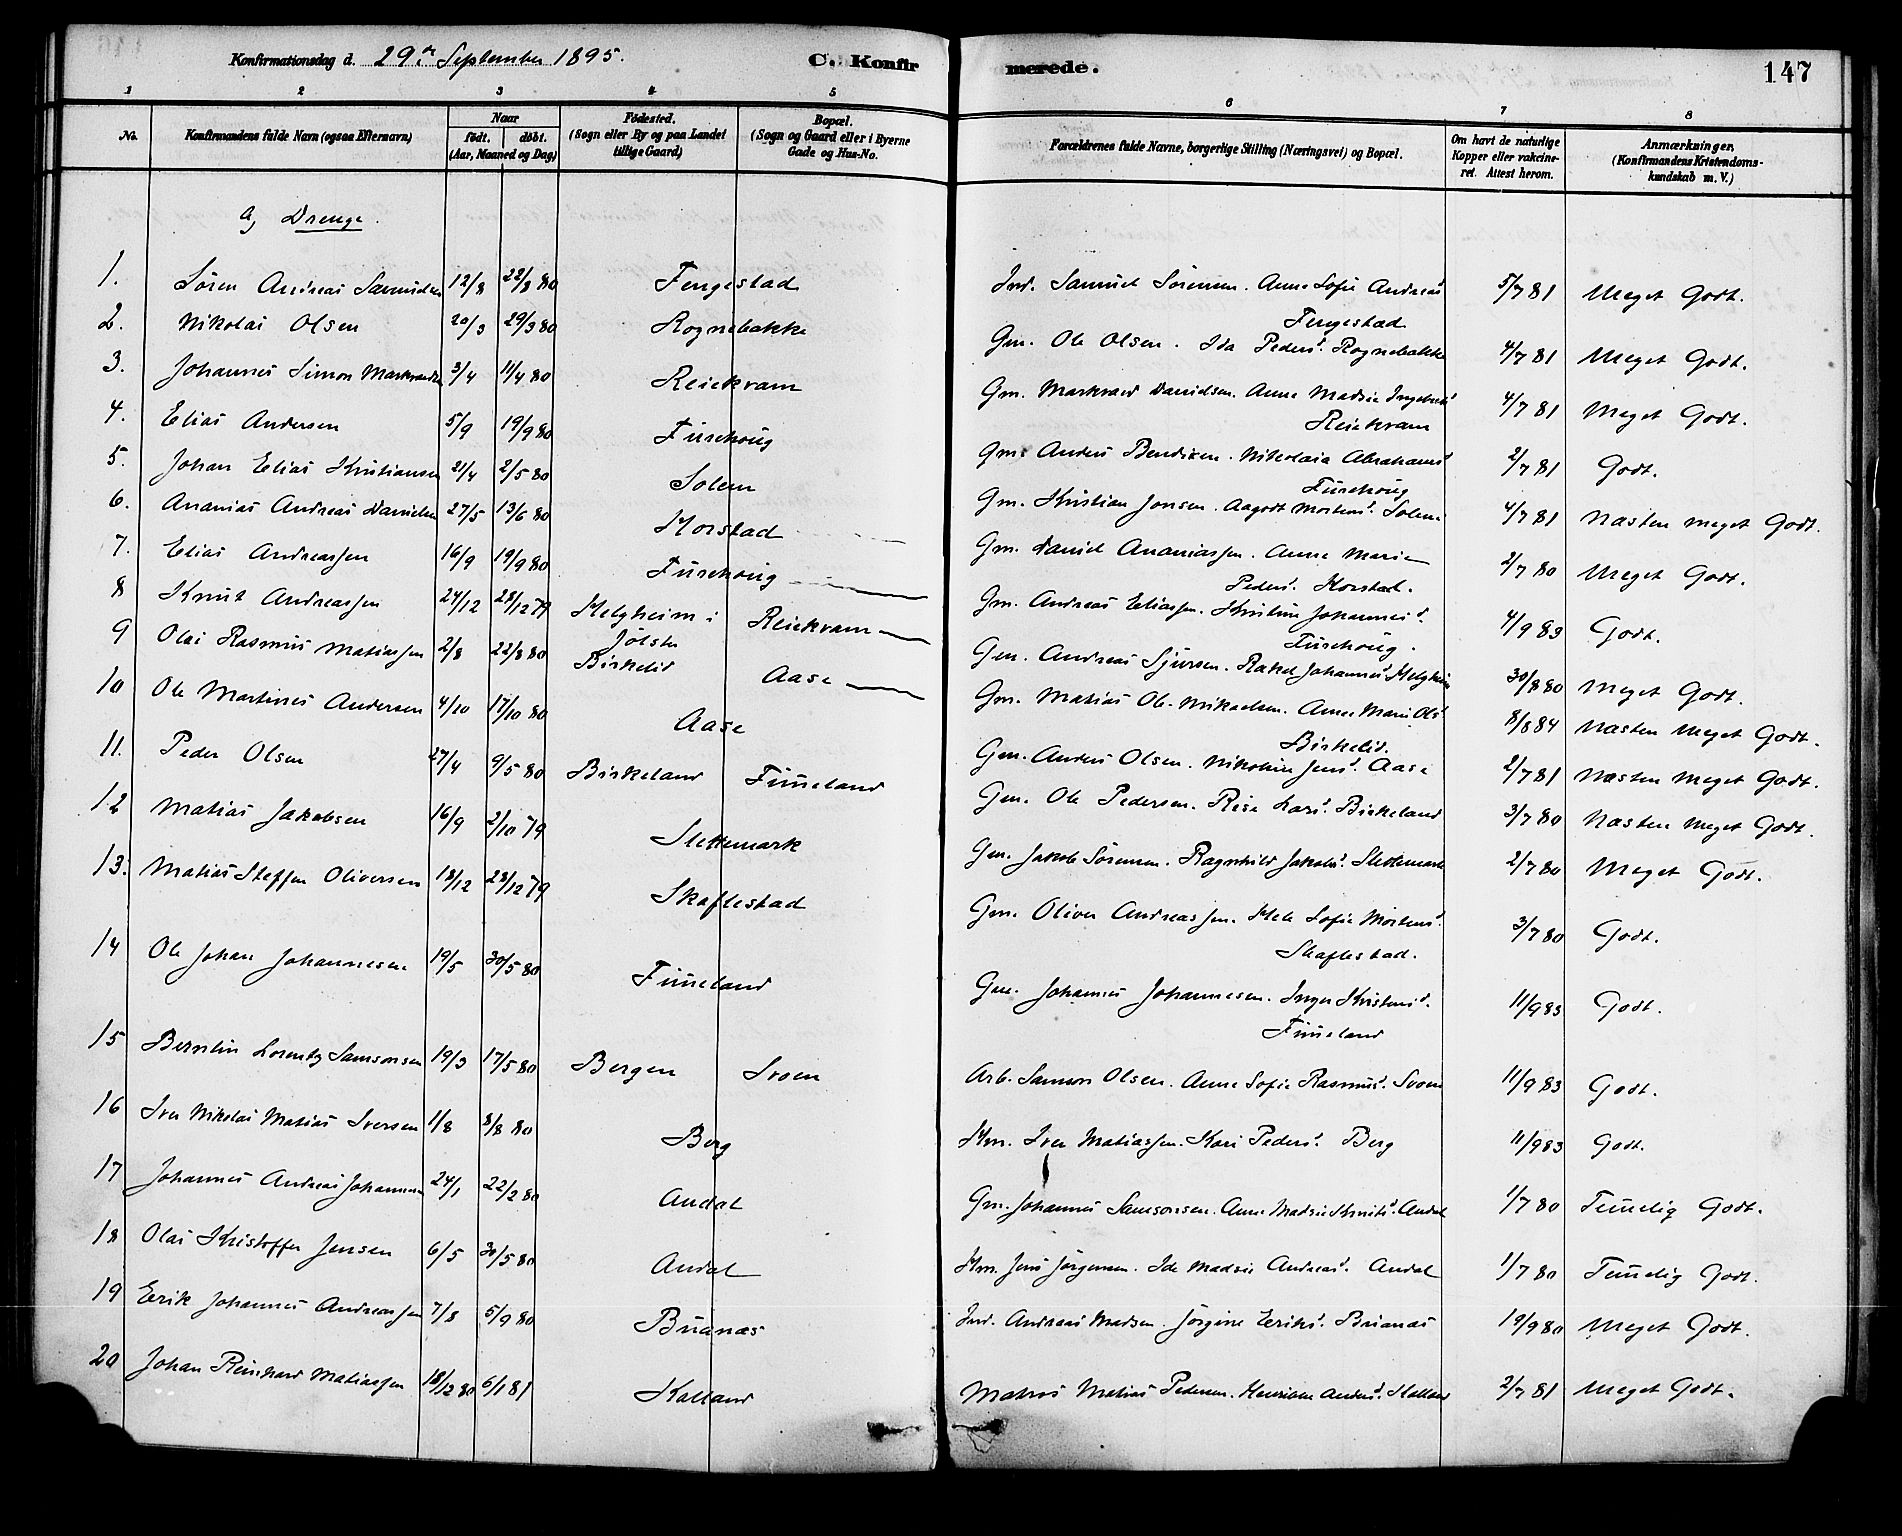 Konfirmationsdag d. 29de September 1895. C. Konfirmerede. 147
1 2 3 4 5 6 7 8
No. Konfirmandens fulde Navn (ogsaa Efternavn) Naar födt. döbt. (Aar, Maaned og Dag) Födested. (Sogn eller By og paa Landet tillige Gaard) Bopæl. (Sogn og Gaard eller i Byerne Gade og Hus-No. Forældrenes fulde Navne, borgerlige Stilling (Næringsvei) og Bopæl. Om havt de naturlige Kopper eller vakcineret. Attest herom. Anmærkninger, (Konfirmandens Kristendomskundskab m. V.)
a) Drenge.
1. Sören Andreas Samuelsen 12/8 22/8 80 Fengestad Ind. Samuel Sörensen. Anne Sofie Andreasd Fengestad 5/7 81 Meget Godt.
2. Nikolai Olsen 20/3 29/3 80 Rognebakke Gm. Ole Olsen. Ida Pedersd. Rognebakke 4/7 81 Meget Godt.
3. Johannes Simon Markvardsen 3/4 11/4 80 Reiekvam Gm. Markvard Danielsen. Anne Madsie Ingebrits Reiekvam 4/7 81 Meget Godt.
4. Elias Andersen 5/9 19/9 80 Furehoug Gm. Anders Bendixen. Nikolaia Abrahamsd Furehoug 2/7 81 Godt.
5. Johan Elias Kristiansen 21/4 2/5 80 Solem Gm. Kristian Jonsen. Aagodt Mortensd. Solem 4/7 81 Næsten meget Godt.
6. Ananias Andreas Danielsen 27/5 13/6 80 Horstad Gm. Daniel Ananiassen. Anne Marie Pedersd. Horstad. 2/7 80 Meget Godt.
7. Elias Andreassen 16/9 19/9 80 Furehoug Gm. Andreas Eliassen. Kristine Johannesd. Furehoug. 4/9 83 Godt.
8 Knut Andreassen 24/12 28/12 79 Helgheim i Jölster Reiekvam Gm. Andreas Sjursen. Rakel Johannesd Helgheim 30/8 80 Meget Godt.
9 Olai Rasmus Matiassen 2/8 22/8 80 Birkelid Aase Gm. Matias Ol. Mikaelsen. Anne Marie Olsd. Birkelid. 8/8 84 Næsten Meget Godt.
10 Ole Martinus Andersen 4/10 17/10 80 Aase Gm. Anders Olsen. Nikoline Jensd. Aase 2/7 81 Næsten meget Godt.
11. Peder Olsen 27/4 9/5 80 Birkeland Fimeland Gm. Ole Pedersen. Rise Larsd. Birkeland 3/7 80 Næsten Meget Godt.
12 Matias Jakobsen 16/9 2/10 79 Slettemark Gm. Jakob Sörensen. Ragnhild Jakobsd. Slettemark 2/7 80 Meget Godt.
13. Matias Steffen Oliversen 18/12 28/12 79 Skaflestad Gm. Oliver Andreassen. Mele Sofie Mortensd. Skaflestad. 3/7 80 Godt.
14 Ole Johan Johannesen 19/5 30/5 80 Fimeland Gm. Johannes Johannesen. Inger Kristensd. Fimeland 11/9 83 Godt.
15 Berntin Lorentz Samsonsen 19/3 17/5 80 Bergen Svoen Arb. Samson Olsen. Anne Sofie Rasmusd. Svoen 11/9 83 Godt.
16 Iver Nikolai Matias Iversen 1/8 8/8 80 Berg Hm. Iver Matiassen. Kari Pedersd. Berg 11/9 83 Godt.
17 Johannes Andreas Johannesen 24/1 22/2 80 Andal Gm. Johannes Samsonsen. Anne Madsie Knutsd. Andal 1/7 80 Temelig Godt.
18 Olai Kristoffer Jensen 6/5 30/5 80 Andal Hm. Jens Jörgensen. Ide Madsie Andreasd. Andal 1/7 80 Temelig Godt.
19 Eerik Johannes Andreassen 7/8 5/9 80 Buanæs Ind. Andreas Madsen. Jörgine Eeriksd. Buanæs 19/9 80 Meget Godt.
20 Johan Reinhard Matiassen 18/12 80 6/1 81 Kalland Matros Matias Pedersen. Henrikke Andersd. Kalland 2/7 81 Meget Godt.